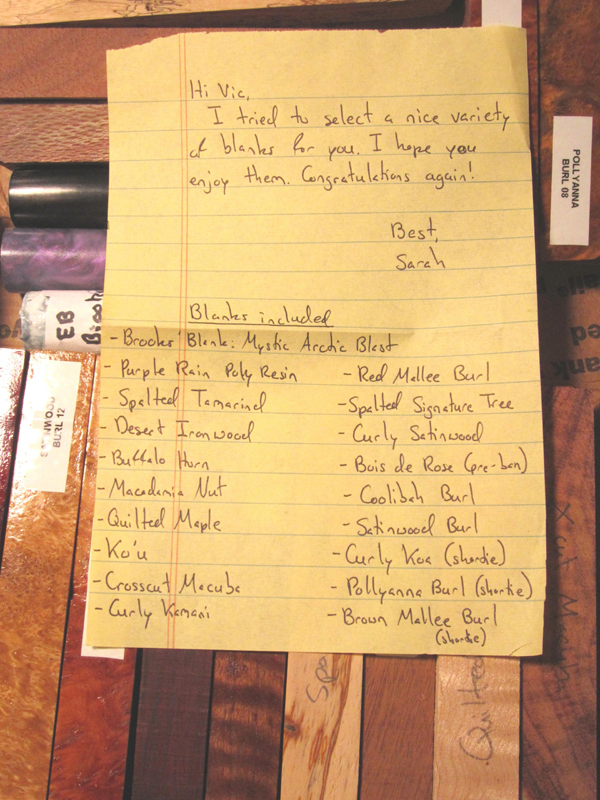 Hi Vic,
I tried to select a nice variety
of blanks for you. I hope you
enjoy them. Congratulations again!
Best,
Sarah
Blanks included
- Brooks' Blank: Mystic Arctic Blast
- Purple Rain Poly Resin
- Spalted Tamarind
- Desert Ironwood
- Buffalo Horn
- Macadamia Nut
- Quilted Maple
- Ko'u
- Crosscut Macuba
- Curly Kamani
- Red Mallee Burl
- Spalted Signature Tree
- Curly Satinwood
- Bois de Rose (pre-ban)
- Coolibah Burl
- Satinwood Burl
- Curly Koa (shortie)
- Pollyanna Burl (shortie)
- Brown Mallee Burl
(shortie)
POLLYANNA
BURL 08
EB
BURL 12
X cut
Quilted